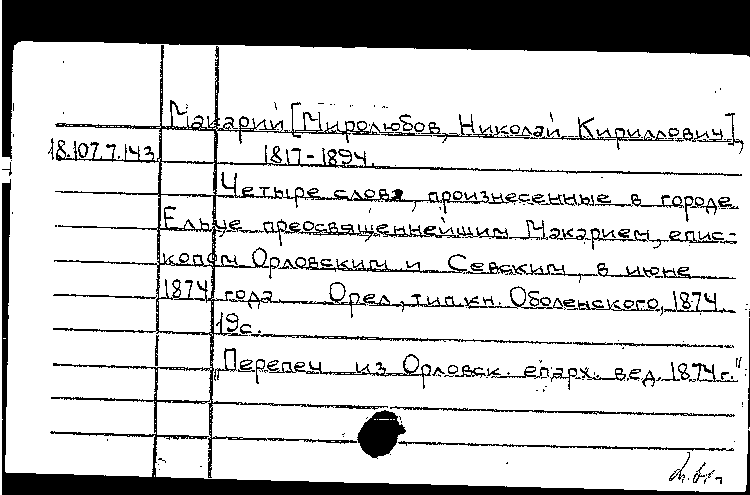 Макарий [Миролюбов, Николай Кириллович],
18.107.7.143 1817-1894.
Четыре слова, произнесенные в городе
Ельце преосвященнейшим Макарием, епис-
копом Орловским и Севским, в июне
1874 года. Орел, тип. кн. Оболенского, 1874.
19с.
"Перепеч из Орловск. епарх. вед. 1874г."